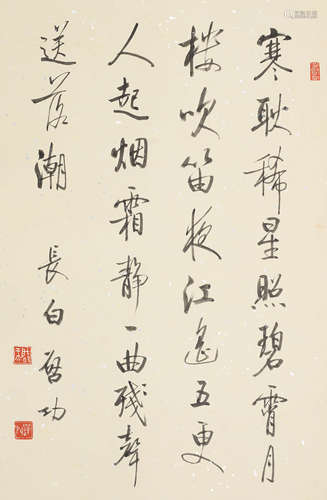 寒耿稀星照碧霄月
楼吹笛夜江遥五更
人起烟霜静一曲残声
送落潮 長白启功